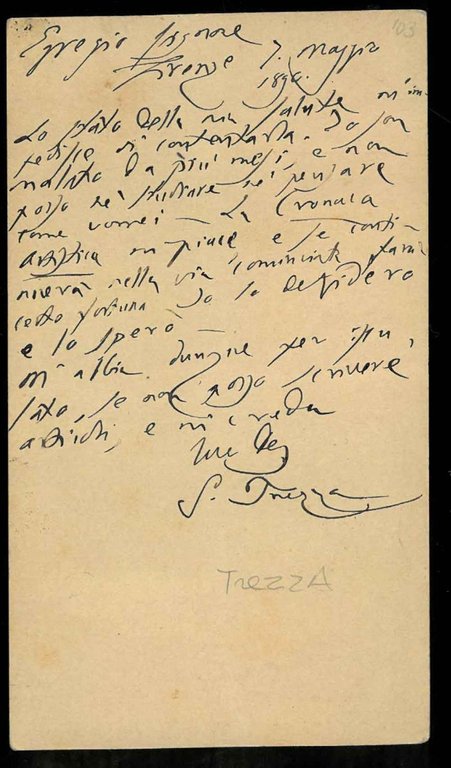 '03
Egregio Signore
Firenze 7. Maggio
1890.
Lo stato della mia salute m'im-
pedisce di contentarla. Io son
malato da più mesi e non
posso nè studiare nè pensare
come vorrei — La Cronaca
artistica mi piace e se conti-
nuerà nella via cominciata farà
certo fortuna. Io lo desidero
e lo spero —
M'abbia dunque per iscu-
sato, se non posso scrivere
articoli, e mi creda
Suo Dev
G. Trezza
TREZZA